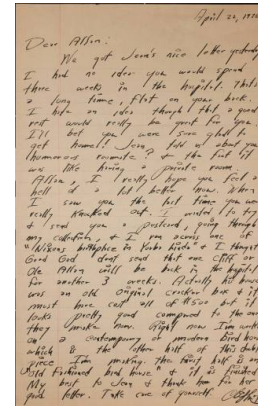 April 22, 1976
Dear Alfon:
We got Jean's nice letter yesterday
I had no idea you would spend
three weeks in the hospital. That's
a long time, flat on your back.
I have an idea though that a good
rest would really be good for you.
I'll bet you were sure glad to
get home! Jean told us about your
humorous roomate & the first bit
was like having a private room.
I really hope you feel a
hell of a lot better now. When
I saw you the last time you were
really knocked out. I wanted to try
& send you a postcard, going through
my collection & I came across one of
birthplace & I thought
Good God dont send that one Cliff or
Ole Alfon will be back in the hospital
for another 3 weeks. Actually his house
was an old original cracker box & it
must have cost all of $500 but it
looks pretty good compared to the ones
they make now. Right now I'm working
on a contemporary or modern bird house
which is the other half of this
piece I'm making. The first half is an
"Old Fashioned bird house" & it is finished
My best to Jean & thank him for her
good letter. Take care of yourself.